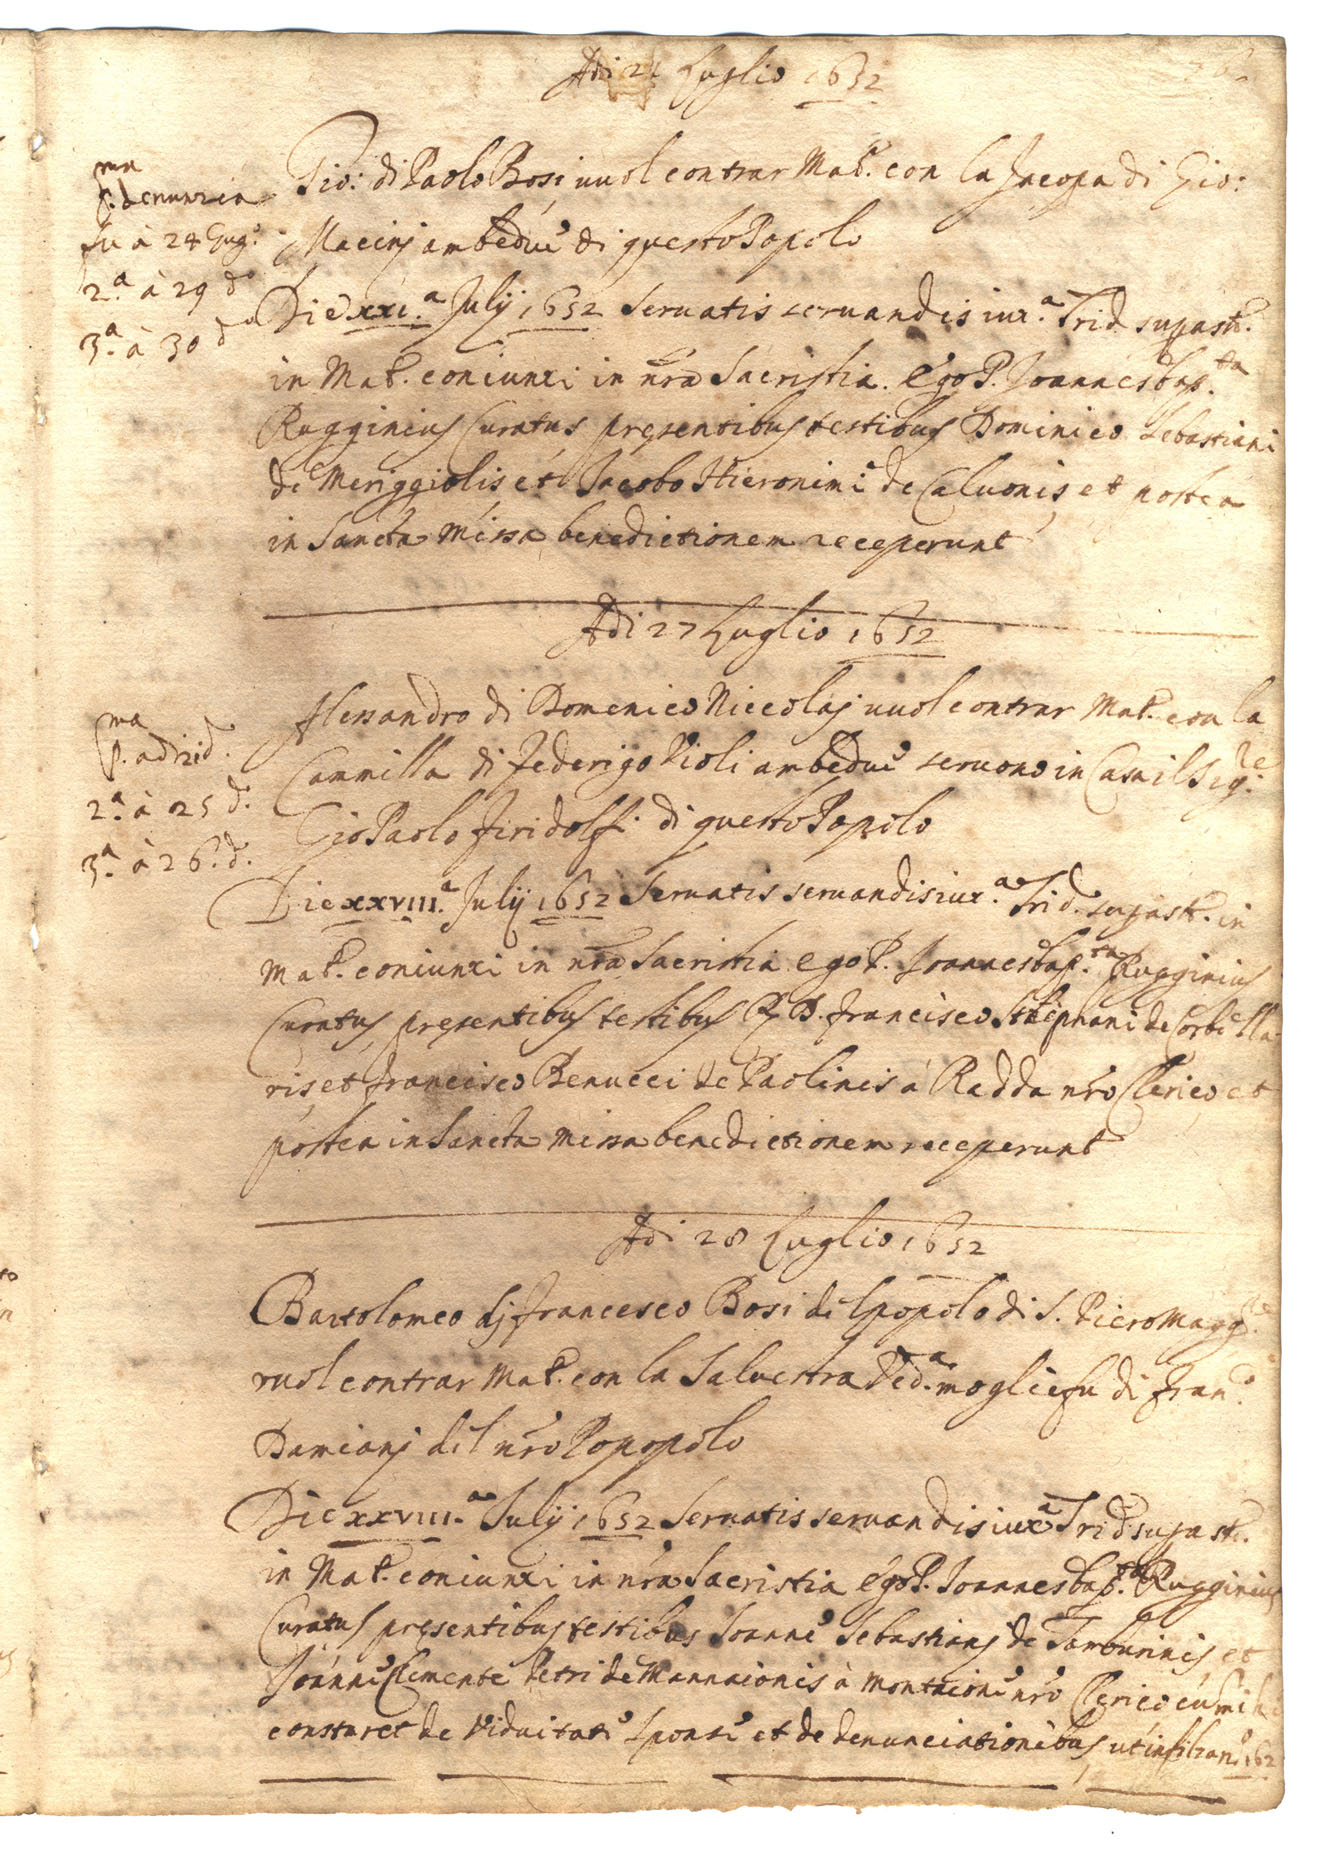 Adi 21 Luglio 1652
Gio: di Paolo Bosi vuol contrar Mat.º con la Jacopa di Gio:
Macinj ambedue di questo Popolo
p.ma denunzia
fu à 24 Giug.º
2.a à 29 d.º
3.a à 30 d.º
Die XXI.a Julij 1652 Servatis servandis iux.a Trid. supast.
in Mat.º coniunxi in nra Sacristia. Ego P. Joannesbap.ta
Rugginius Curatus presentibus testibus Dominico Sebastiani
de Meriggiolis et Jacobo Hieronimi de Calvonis, et postea
in Sancta Missa benedictionem receperunt
Adi 27 Luglio 1652
Alessandro di Domenico Niccolaj vuol contrar Mat.º con la
Cammilla di Federigo Violi ambedue servono in Casa il Sig.re
Gio Paolo Firidolfi di questo Popolo
p.ma adi 21 d.
2.a à 25 d.º
3.a à 26. d.
Die XXVIII.a Julij 1652 Servatis servandis iux.a Trid. supast. in
Mat.º coniunxi in nra Sacristia ego P. Joannesbap.ta Rugginius
Curatus, presentibus testibus R. D. Francisco Stephani de Corbella
ris, et Francisco Benucci de Paolinis à Radda nro Clerico, et
postea in Sancta missa benedictionem receperunt
Adi 28 Luglio 1652
Bartolomeo dj Francesco Bosi del popolo di S. Piero Magg.re
vuol contrar Mat.º con la Salvestra Ved.a moglie fu di Fran.º
Damianj del nro Popopolo
Die XXVIII.a Julij 1652 Servatis servandis iux.a Trid. supast.
in Mat.º coniunxi in nra Sacristia Ego P. Joannesbap.ta Rugginius
Curatus presentibus testibus Joanne Sebastianj de Tamburinis, et
Joanne Clemente Petri de Mannaionis à Montaione nro Clerico cum mihi
constaret de Viduitate Sponse et de denunciationibus, ut in filza n.º 162